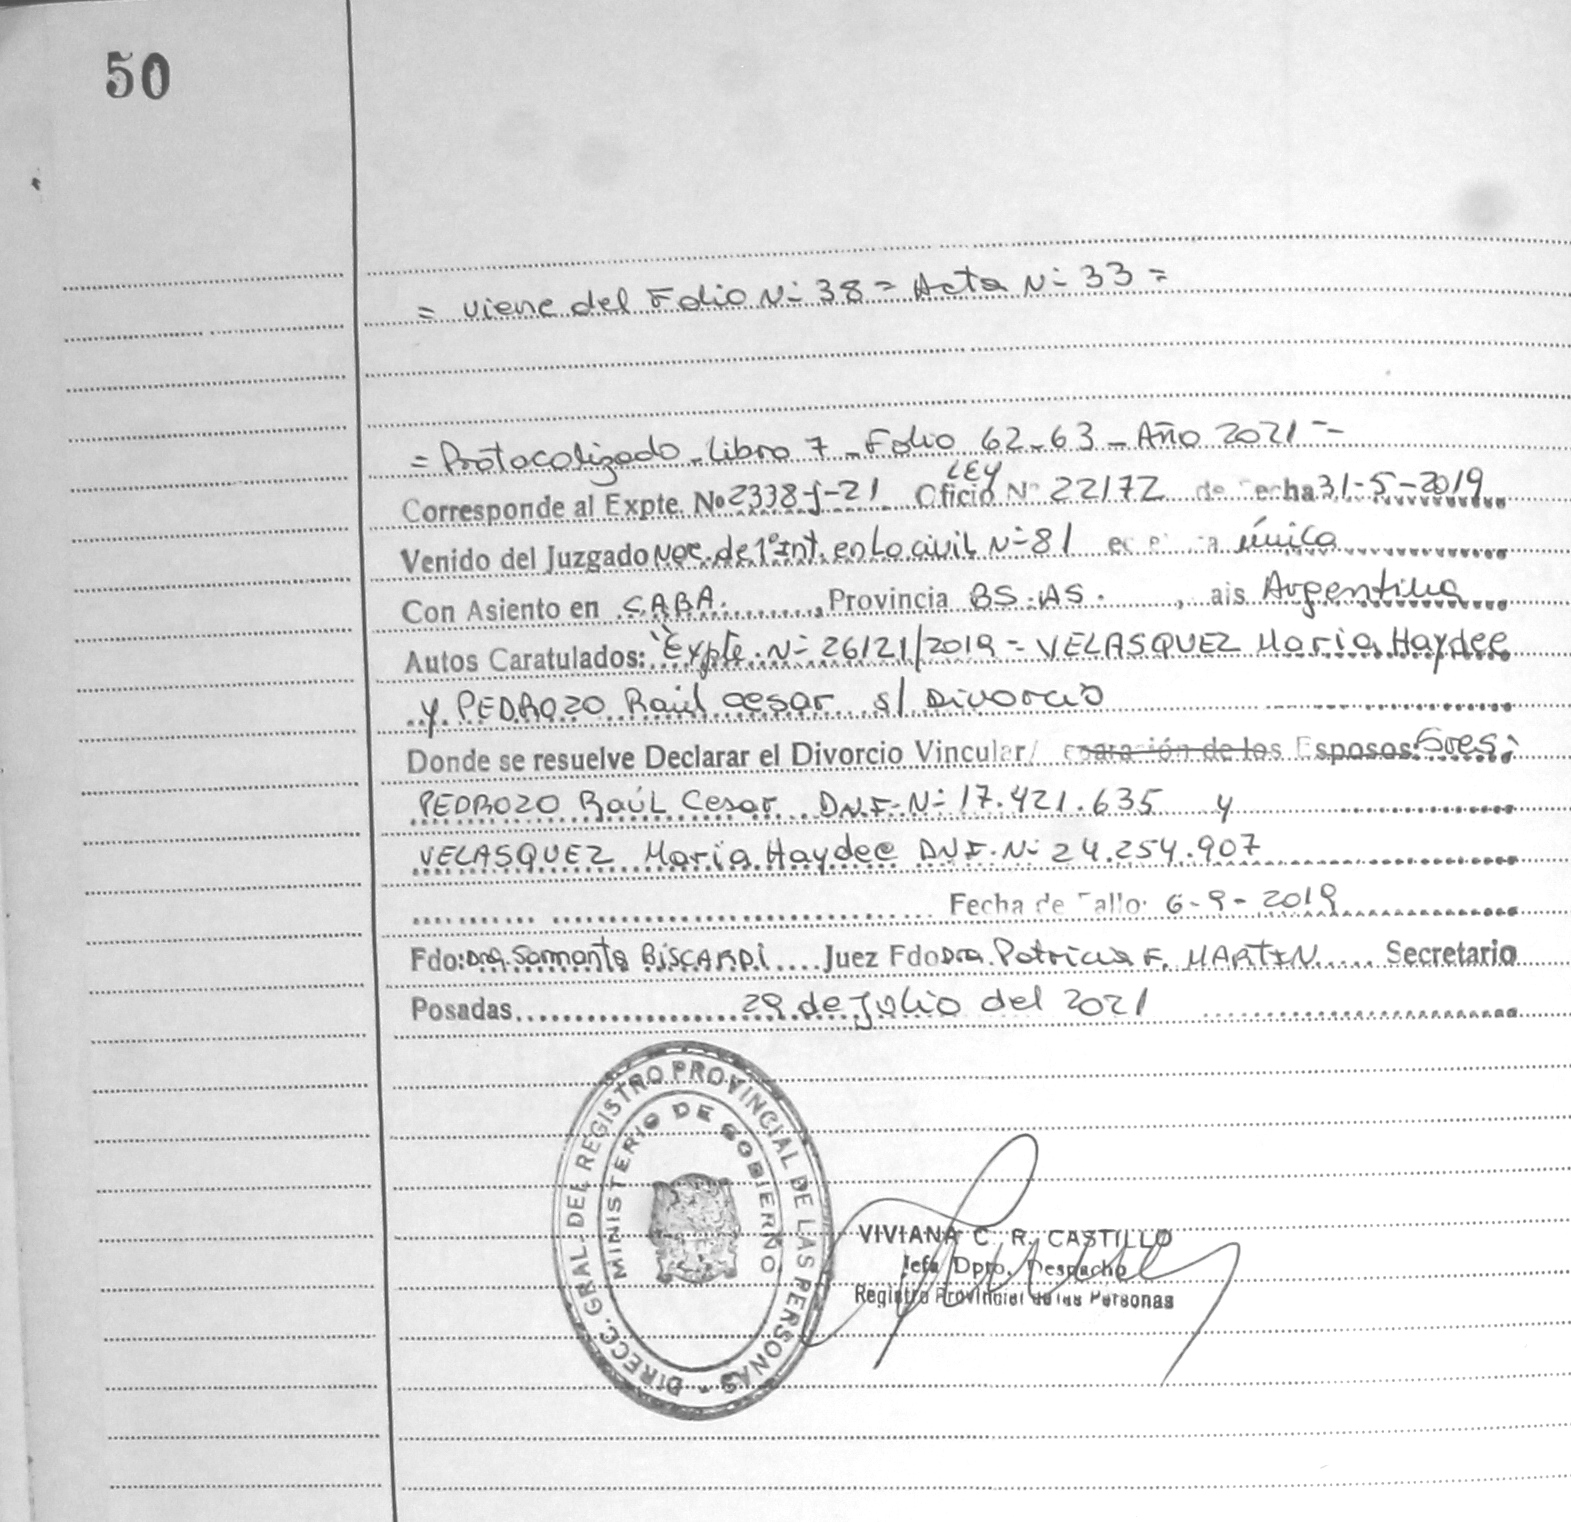 50
= Viene del Folio Nº 38 = Acta Nº 33 =
= Protocolizado - Libro 7 - Folio 62-63 - Año 2021 =
Corresponde al Expte. Nº 2338-J-21 Oficio LEY Nº 22172 de Fecha 31-5-2019
Venido del Juzgado Nac. de 1º Int. en Lo civil Nº 81 única
Con Asiento en C.A.B.A. , Provincia BS. AS. , ais Argentina
Autos Caratulados: "Expte. Nº 26121/2019 = VELASQUEZ Maria Haydee
y PEDROZO Raúl Cesar s/ Divorcio
Donde se resuelve Declarar el Divorcio Vincular/ paración de los Esposos: Sres:
PEDROZO Raúl Cesar D.N.I. Nº 17.421.635 y
VELASQUEZ Maria Haydee D.N.I. Nº 24.254.907
Fecha de Fallo: 6-9-2019
Fdo: Dra. Samanta BISCARDI Juez Fdo Dra. Patricia F. MARTIN Secretario
Posadas 29 de Julio del 2021
DIRECC. GRAL. DEL REGISTRO PROVINCIAL DE LAS PERSONAS -
MINISTERIO DE GOBIERNO
VIVIANA C. R. CASTILLO
Jefa Dpto. Despacho
Registro Provincial de las Personas